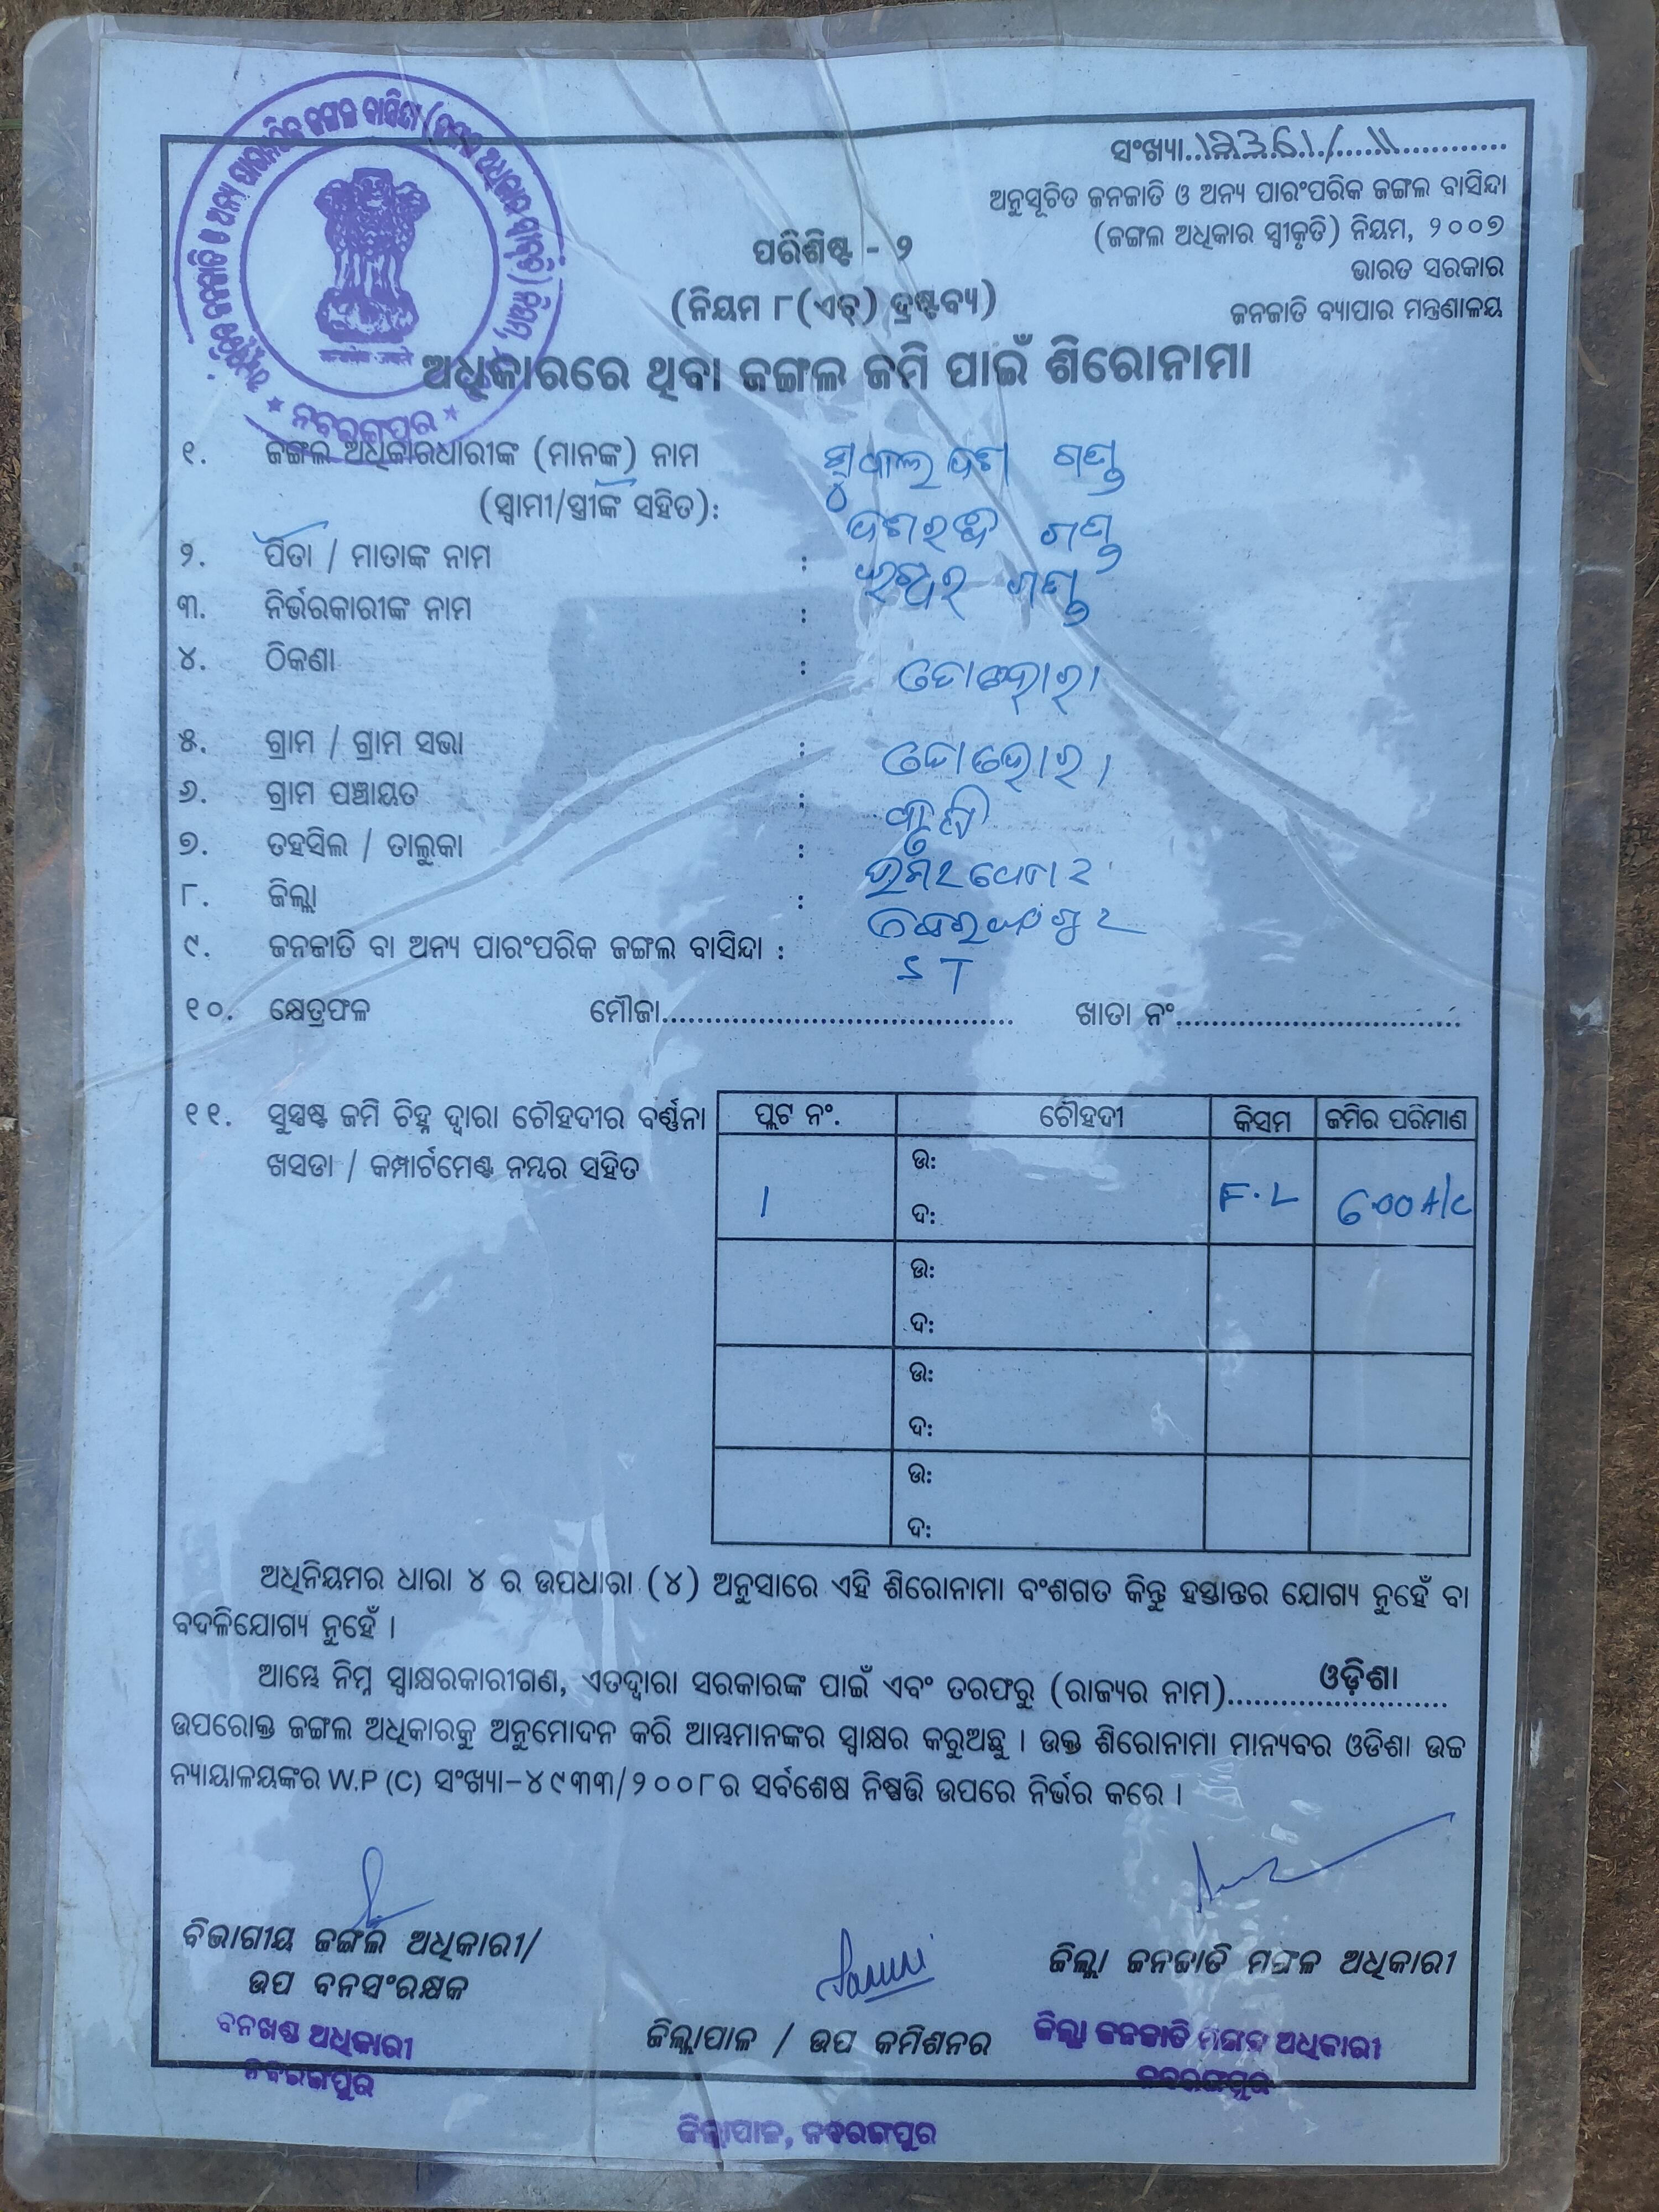 ସଂଖ୍ୟା
ଅନୁସୂଚିତ ଜନଜାତି ଓ ଅନ୍ୟ ପାରଂପରିକ ଜଙ୍ଗଲ ବାସିନ୍ଦା
(ଜଙ୍ଗଲ ଅଧିକାର ସ୍ୱୀକୃତି) ନିୟମ, ୨୦୦୭
ଭାରତ ସରକାର
ଜନଜାତି ବ୍ୟାପାର ମନ୍ତ୍ରଣାଳୟ
ପରିଶିଷ୍ଟ - ୨
(ନିୟମ ୮(ଏଚ୍) ଦ୍ରଷ୍ଟବ୍ୟ)
ଅଧିକାରରେ ଥିବା ଜଙ୍ଗଲ ଜମି ପାଇଁ ଶିରୋନାମା
★ ନବରଙ୍ଗପୁର ★
୧. ଜଙ୍ଗଲ ଅଧିକାରଧାରୀଙ୍କ (ମାନଙ୍କ) ନାମ
(ସ୍ୱାମୀ/ସ୍ତ୍ରୀଙ୍କ ସହିତ):
୨. ପିତା / ମାତାଙ୍କ ନାମ :
୩. ନିର୍ଭରକାରୀଙ୍କ ନାମ :
୪. ଠିକଣା :
୫. ଗ୍ରାମ / ଗ୍ରାମ ସଭା :
୬. ଗ୍ରାମ ପଞ୍ଚାୟତ :
୭. ତହସିଲ / ତାଲୁକା :
୮. ଜିଲ୍ଲା :
୯. ଜନଜାତି ବା ଅନ୍ୟ ପାରଂପରିକ ଜଙ୍ଗଲ ବାସିନ୍ଦା : ST
୧୦. କ୍ଷେତ୍ରଫଳ ମୌଜା........ ଖାତା ନଂ........
୧୧. ସୁସ୍ପଷ୍ଟ ଜମି ଚିହ୍ନ ଦ୍ୱାରା ଚୌହଦୀର ବର୍ଣ୍ଣନା
ଖସଡା / କମ୍ପାର୍ଟମେଣ୍ଟ ନମ୍ବର ସହିତ
ପ୍ଲଟ ନଂ. ଚୌହଦୀ କିସମ ଜମିର ପରିମାଣ
1 ଉ: ଦ: F.L 6.00 A/C
ଉ:
ଦ:
ଉ:
ଦ:
ଉ:
ଦ:
ଅଧିନିୟମର ଧାରା ୪ ର ଉପଧାରା (୪) ଅନୁସାରେ ଏହି ଶିରୋନାମା ବଂଶଗତ କିନ୍ତୁ ହସ୍ତାନ୍ତର ଯୋଗ୍ୟ ନୁହେଁ ବା
ବଦଳିଯୋଗ୍ୟ ନୁହେଁ ।
ଆମ୍ଭେ ନିମ୍ନ ସ୍ୱାକ୍ଷରକାରୀଗଣ, ଏତଦ୍ଦ୍ୱାରା ସରକାରଙ୍କ ପାଇଁ ଏବଂ ତରଫରୁ (ରାଜ୍ୟର ନାମ)........ଓଡ଼ିଶା........
ଉପରୋକ୍ତ ଜଙ୍ଗଲ ଅଧିକାରକୁ ଅନୁମୋଦନ କରି ଆମ୍ଭମାନଙ୍କର ସ୍ୱାକ୍ଷର କରୁଅଛୁ । ଉକ୍ତ ଶିରୋନାମା ମାନ୍ୟବର ଓଡିଶା ଉଚ୍ଚ
ନ୍ୟାୟାଳୟଙ୍କର W.P (C) ସଂଖ୍ୟା-୪୯୩୩/୨୦୦୮ର ସର୍ବଶେଷ ନିଷ୍ପତ୍ତି ଉପରେ ନିର୍ଭର କରେ ।
ବିଭାଗୀୟ ଜଙ୍ଗଲ ଅଧିକାରୀ/
ଉପ ବନସଂରକ୍ଷକ
ବନଖଣ୍ଡ ଅଧିକାରୀ
ନବରଙ୍ଗପୁର
ଜିଲ୍ଲାପାଳ / ଉପ କମିଶନର
ଜିଲ୍ଲାପାଳ, ନବରଙ୍ଗପୁର
ଜିଲ୍ଲା ଜନଜାତି ମଙ୍ଗଳ ଅଧିକାରୀ
ଜିଲ୍ଲା ଜନଜାତି ମଙ୍ଗଳ ଅଧିକାରୀ
ନବରଙ୍ଗପୁର